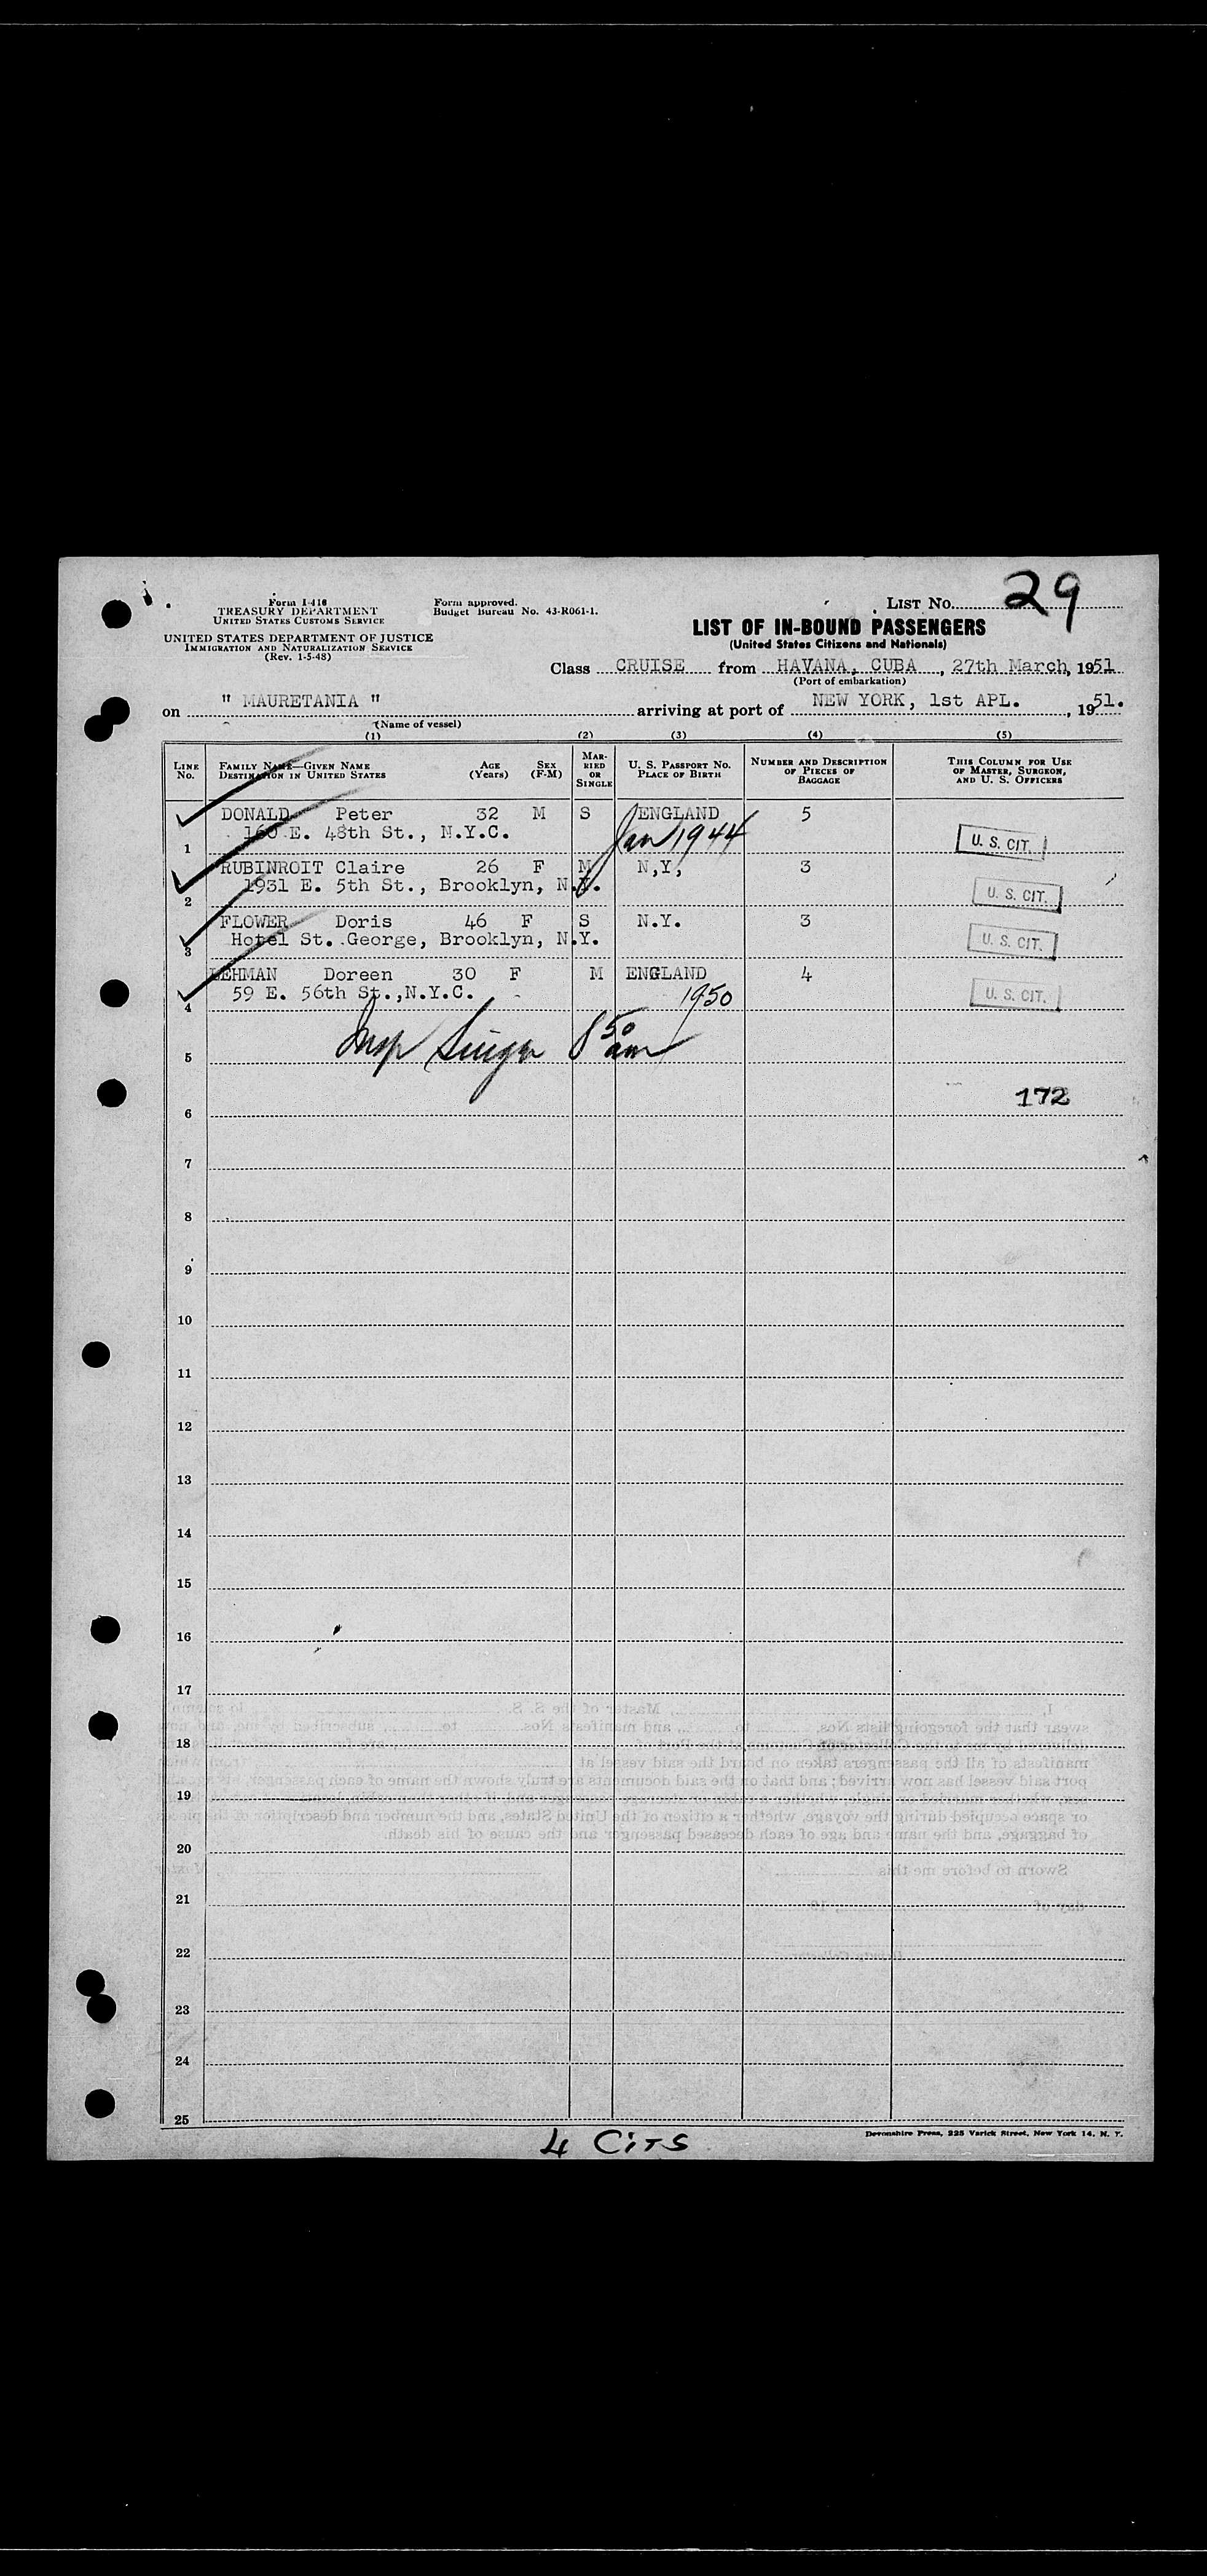 Form I-416
TREASURY DEPARTMENT
UNITED STATES CUSTOMS SERVICE
UNITED STATES DEPARTMENT OF JUSTICE
IMMIGRATION AND NATURALIZATION SERVICE
(Rev. 1-5-48)
Form approved.
Budget Bureau No. 43-R061-1.
LIST No. 29
LIST OF IN-BOUND PASSENGERS
(United States Citizens and Nationals)
Class CRUISE from HAVANA, CUBA, 27th March, 1951
(Port of embarkation)
on " MAURETANIA " arriving at port of NEW YORK, 1st APL., 1951.
(Name of vessel)
(1) (2) (3) (4) (5)
LINE No. FAMILY NAME—GIVEN NAME DESTINATION IN UNITED STATES AGE (Years) SEX (F-M) MARRIED OR SINGLE U. S. PASSPORT No. PLACE OF BIRTH NUMBER AND DESCRIPTION OF PIECES OF BAGGAGE THIS COLUMN FOR USE OF MASTER, SURGEON, AND U. S. OFFICERS
DONALD Peter 32 M S ENGLAND 5
1 160 E. 48th St., N.Y.C. Jan 1944 U. S. CIT.
RUBINROIT Claire 26 F M N,Y, 3
2 1931 E. 5th St., Brooklyn, N.Y. U. S. CIT.
FLOWER Doris 46 F S N.Y. 3
3 Hotel St. George, Brooklyn, N.Y. U. S. CIT.
LEHMAN Doreen 30 F M ENGLAND 4
4 59 E. 56th St.,N.Y.C. 1950 U. S. CIT.
5 Insp Singer 8 50 am
6 172
7
8
9
10
11
12
13
14
15
16
17
18
19
20
21
22
23
24
25
4 CITS
Devonshire Press, 225 Varick Street, New York 14, N. Y.